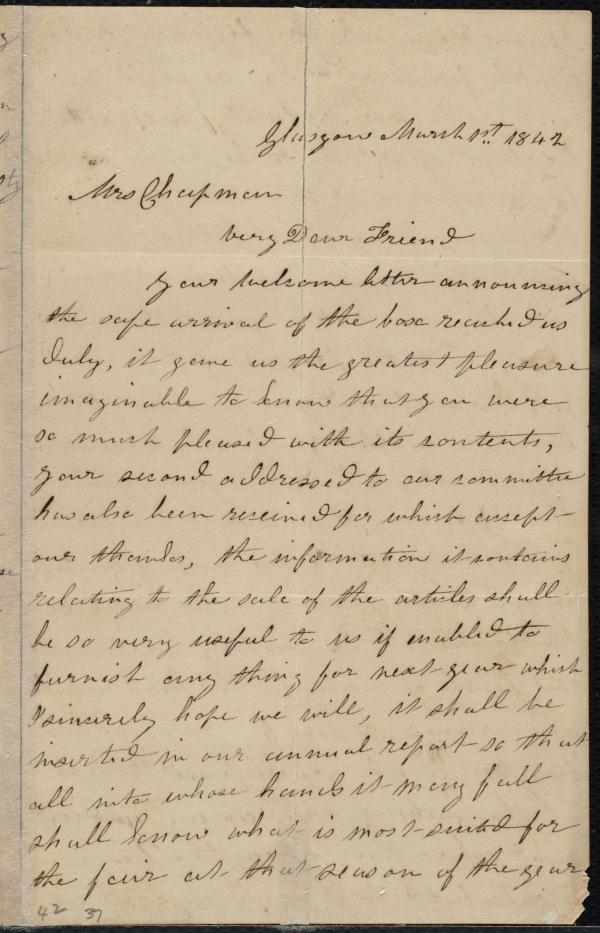 Glasgow March 1st. 1842
Mrs Chapman
Very Dear Friend
Your welcome letter announcing
the safe arrival of the box reached us
duly, it gave us the greatest pleasure
imaginable to know that you were
so much pleased with its contents,
your second addressed to our committee
has also been received for which accept
our thanks, the information it contains
relating to the sale of the articles shall
be so very useful to us if enabled to
furnish any thing for next year which
I sincerely hope we will, it shall be
inserted in our annual report so that
all into whose hands it may fall
shall know what is most suited for
the fair at that season of the year
42 37